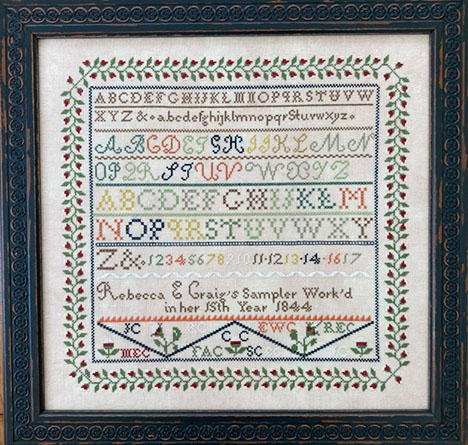 ABCDEFGHIJKLMNOPQRSTUVW
XYZ&•abcdefghijklmnopqrstuvwxyz•
ABCDEFGHIJKLMN
OPQRSTUVWXYZ
ABCDEFGHIJKLM
NOPQRSTUVWXY
Z&1234567891011·12·13·14·1617
Rebecca E Craig's Sampler Work'd
in her 15th Year 1844
JC SC CC EWC REC
MEC FAC SC